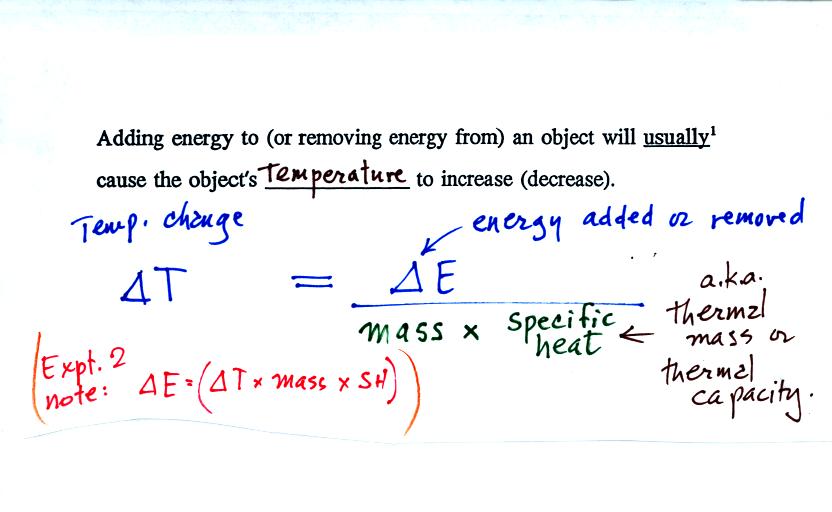 Adding energy to (or removing energy from) an object will usually¹
cause the object's Temperature to increase (decrease).
Temp. change
energy added or removed
ΔT = ΔE
mass x specific heat
a.k.a.
thermal
mass or
thermal
capacity.
Expt. 2
note: ΔE = (ΔT x mass x SH)